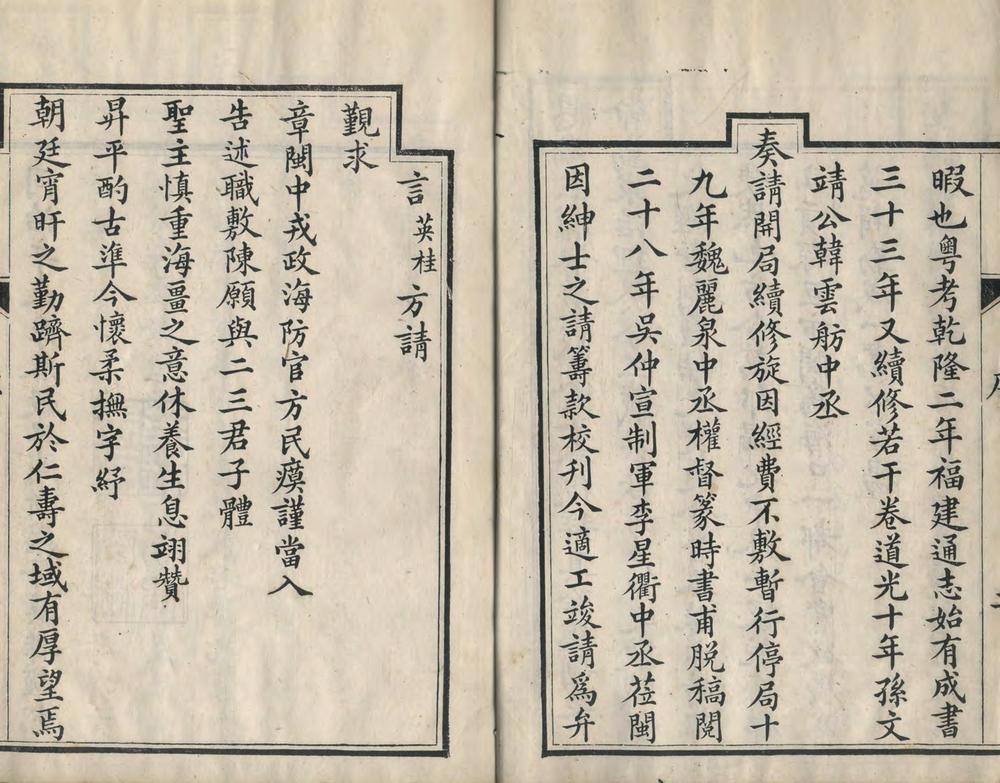 暇也粵考乾隆二年福建通志始有成書
三十三年又續修若干卷道光十年孫文
靖公韓雲舫中丞
奏請開局續修旋因經費不敷暫行停局十
九年魏麗泉中丞權督篆時書甫脱稿閱
二十八年吳仲宣制軍李星衢中丞莅閩
因紳士之請籌款校刊今適工竣請爲弁
言英桂方請
覲求
章閩中戎政海防官方民瘼謹當入
告述職敷陳願與二三君子體
聖主慎重海畺之意休養生息翊贊
昇平酌古準今懷柔撫字紓
朝廷宵旰之勤躋斯民於仁壽之域有厚望焉